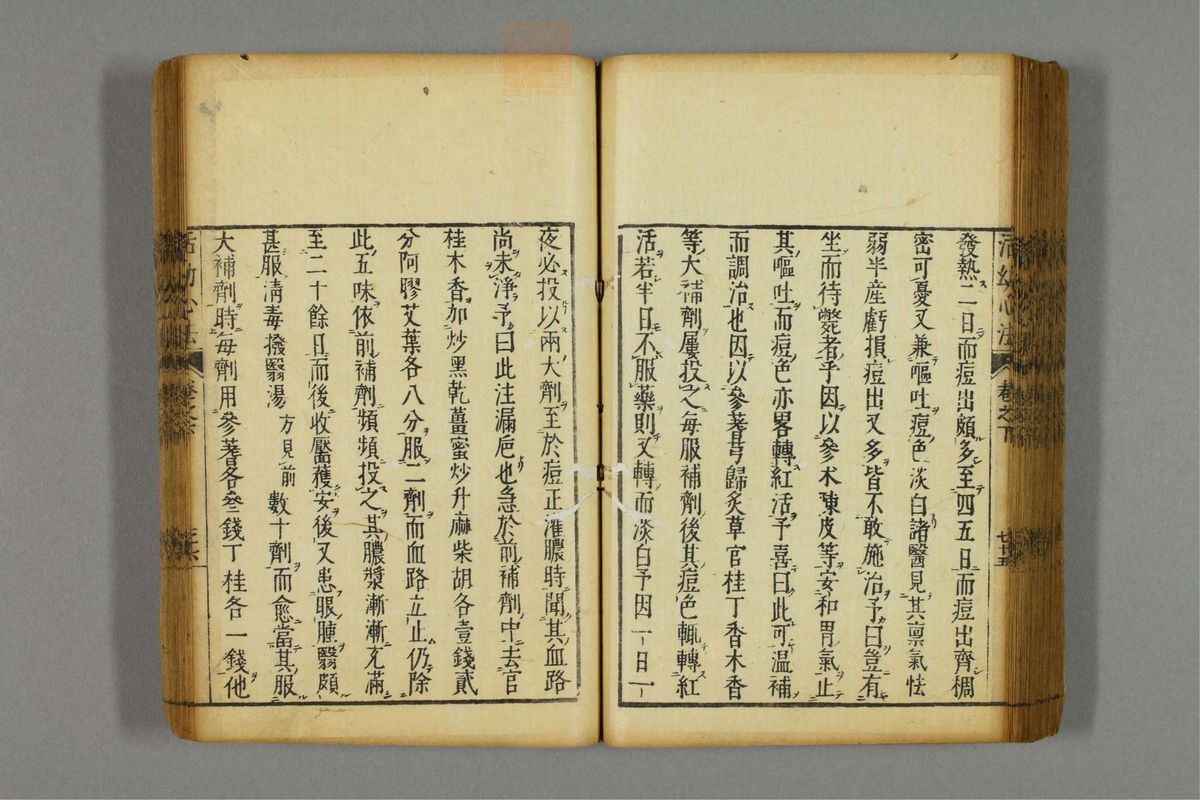 活幼心法 卷之下 七十五
發熱二日而痘出頗多至四五日而痘出齊稠
密可憂又兼嘔吐痘色淡白諸醫見其禀氣怯
弱半産虧損痘出又多皆不敢施治予曰豈有
坐而待斃者乎因以參朮陳皮等安和胃氣止
其嘔吐而痘色亦畧轉紅活予喜曰此可温補
而調治也因以參蓍芎歸炙草官桂丁香木香
等大補劑屢投之每服補劑後其痘色輒轉紅
活若半日不服藥則又轉而淡白予因一日一
夜必投以兩大劑至於痘正灌膿時聞其血路
尚未淨予曰此注漏巵也急於前補劑中去官
桂木香加炒黑乾薑蜜炒升麻柴胡各壹錢貳
分阿膠艾葉各八分服二劑而血路立止仍除
此五味依前補劑頻頻投之其膿漿漸漸充滿
至二十餘日而後收靨獲安後又患眼腫翳頗
甚服清毒撥翳湯方見前數十劑而愈當其服
大補劑時每劑用參蓍各叄錢丁桂各一錢他
活幼心法